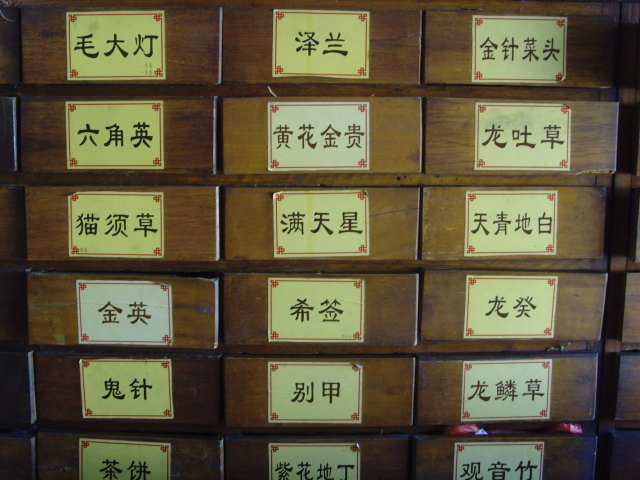 毛大灯
泽兰
金针菜头
六角英
黄花金贵
龙吐草
猫须草
满天星
天青地白
金英
希签
龙癸
鬼针
别甲
龙鳞草
茶饼
紫花地丁
观音竹